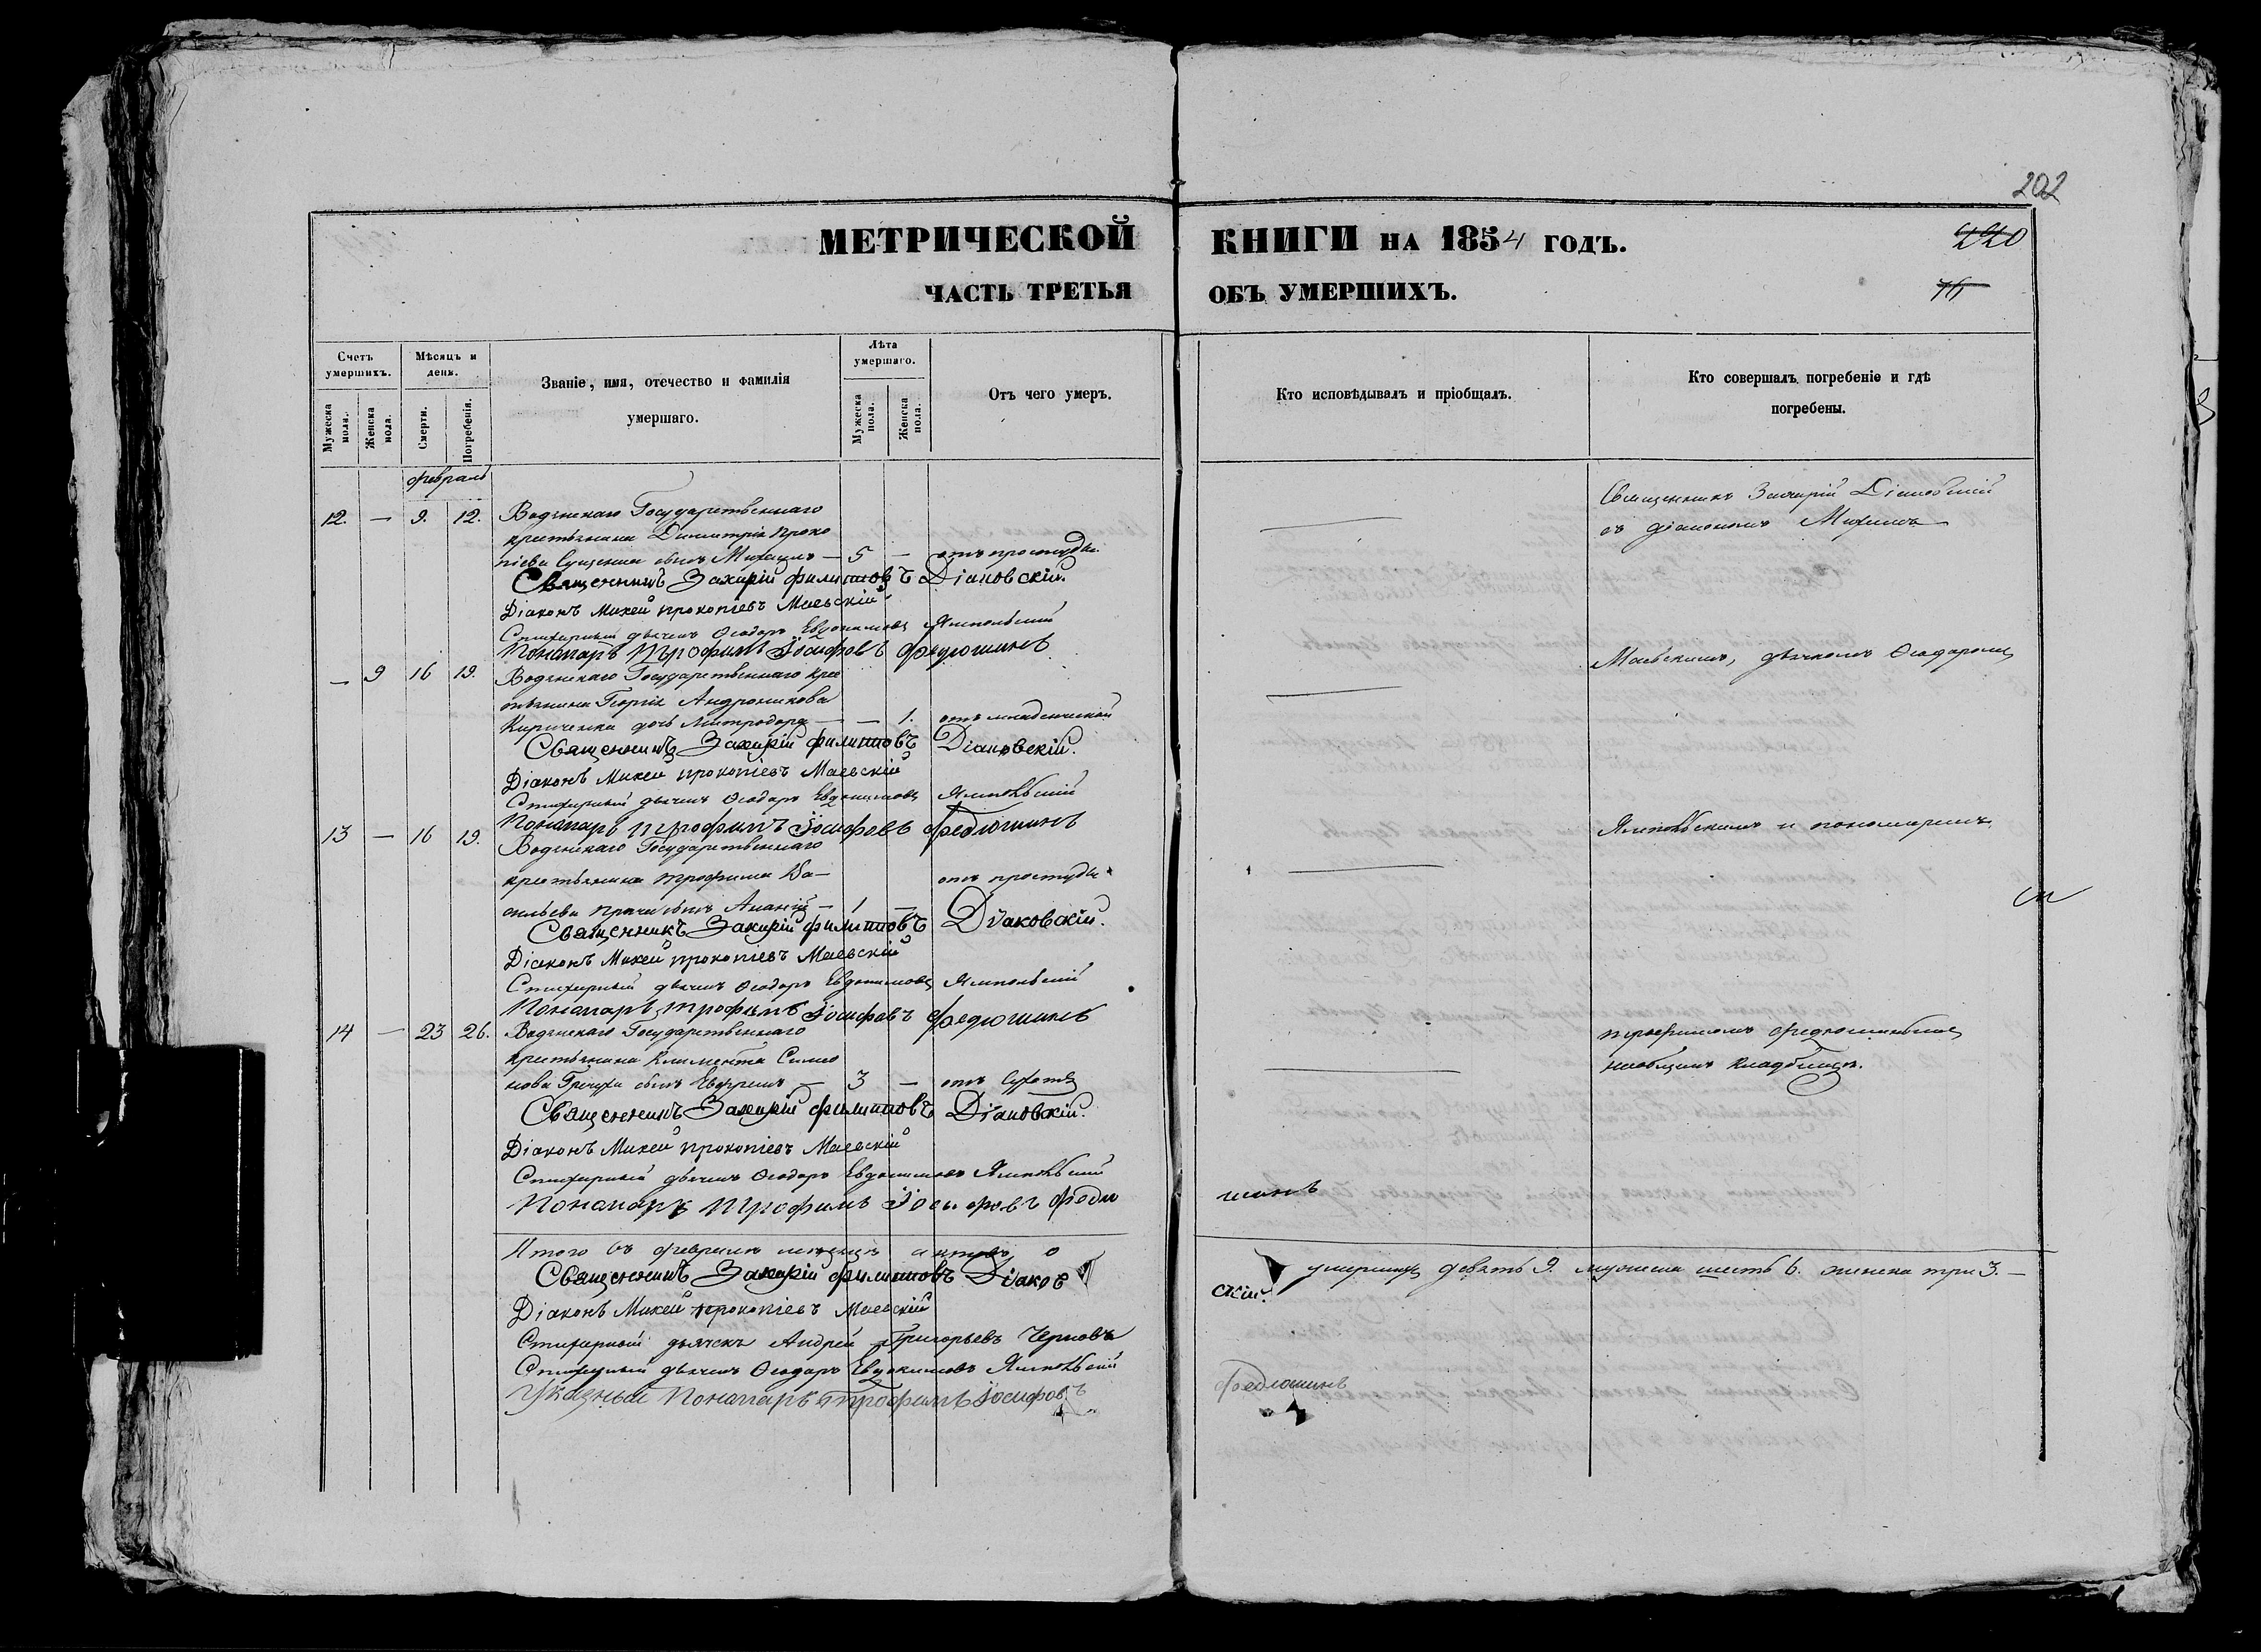 202
МЕТРИЧЕСКОЙ КНИГИ НА 1854 ГОДЪ.
220
ЧАСТЬ ТРЕТЬЯ ОБЪ УМЕРШИХЪ.
Счетъ умершихъ.
Мужеска пола.
Женска пола.
Мѣсяцъ и день.
Смерти.
Погребенія.
Званіе, имя, отечество и фамилія
умершаго.
Лѣта умершаго.
Мужеска пола.
Женска пола.
Отъ чего умеръ.
Кто исповѣдывалъ и пріобщалъ.
Кто совершалъ погребеніе и гдѣ
погребены.
февраль
12. — 9. 12. Водянскаго Государственнаго
крестьянина Димитрія Проко
піева сынъ Михаилъ — 5 — отъ простуды
Священникъ Захарій Филиповъ Діаковскій.
Діаконъ Михей Прокопіевъ Маевскій
Стихарный дьячекъ Ѳеодоръ Евдокимовъ Ямпольскій
Пономарь Трофимъ Іосифовъ Федюшинъ
— 9 16 19. Водянскаго Государственнаго кре
стьянина Георгія Андроникова
Кириченка дочь Митродора — — 1. отъ младенческой
Священникъ Захарій Филиповъ Діаковскій.
Діаконъ Михей Прокопіевъ Маевскій
Стихарный дьячекъ Ѳеодоръ Евдокимовъ Ямпольскій
Пономарь Трофимъ Іосифовъ Федюшинъ
13 — 16 19. Водянскаго Государственнаго
крестьянина Трофима Ва-
сильева сынъ Ананій — 1 — отъ простуды
Священникъ Захарій Филиповъ Діаковскій.
Діаконъ Михей Прокопіевъ Маевскій
Стихарный дьячекъ Ѳеодоръ Евдокимовъ Ямпольскій
Пономарь Трофимъ Іосифовъ Федюшинъ
14 — 23 26. Водянскаго Государственнаго
крестьянина Климента Симо
нова сынъ Ефремъ — 3 — отъ сухоты
Священникъ Захарій Филиповъ Діаковскій.
Діаконъ Михей Прокопіевъ Маевскій
Стихарный дьячекъ Ѳеодоръ Евдокимовъ Ямпольскій
Пономарь Трофимъ Іосифовъ Федю
шинъ
Священникъ Захарій Діаковскій
съ діакономъ Михеемъ
Маевскимъ, дьячкомъ Ѳеодоромъ
Ямпольскимъ и пономаремъ
Трофимомъ Федюшинымъ
на общемъ кладбищѣ.
Итого въ февралѣ мѣсяцѣ
умершихъ девять 9. мужеска шесть 6. женска три 3. —
Священникъ Захарій Филиповъ Діаков
скій.
Діаконъ Михей Прокопіевъ Маевскій
Стихарный дьячекъ Андрей Григорьевъ Черновъ
Стихарный дьячекъ Ѳеодоръ Евдокимовъ Ямпольскій
Указный Пономарь Трофимъ Іосифовъ
Федюшинъ